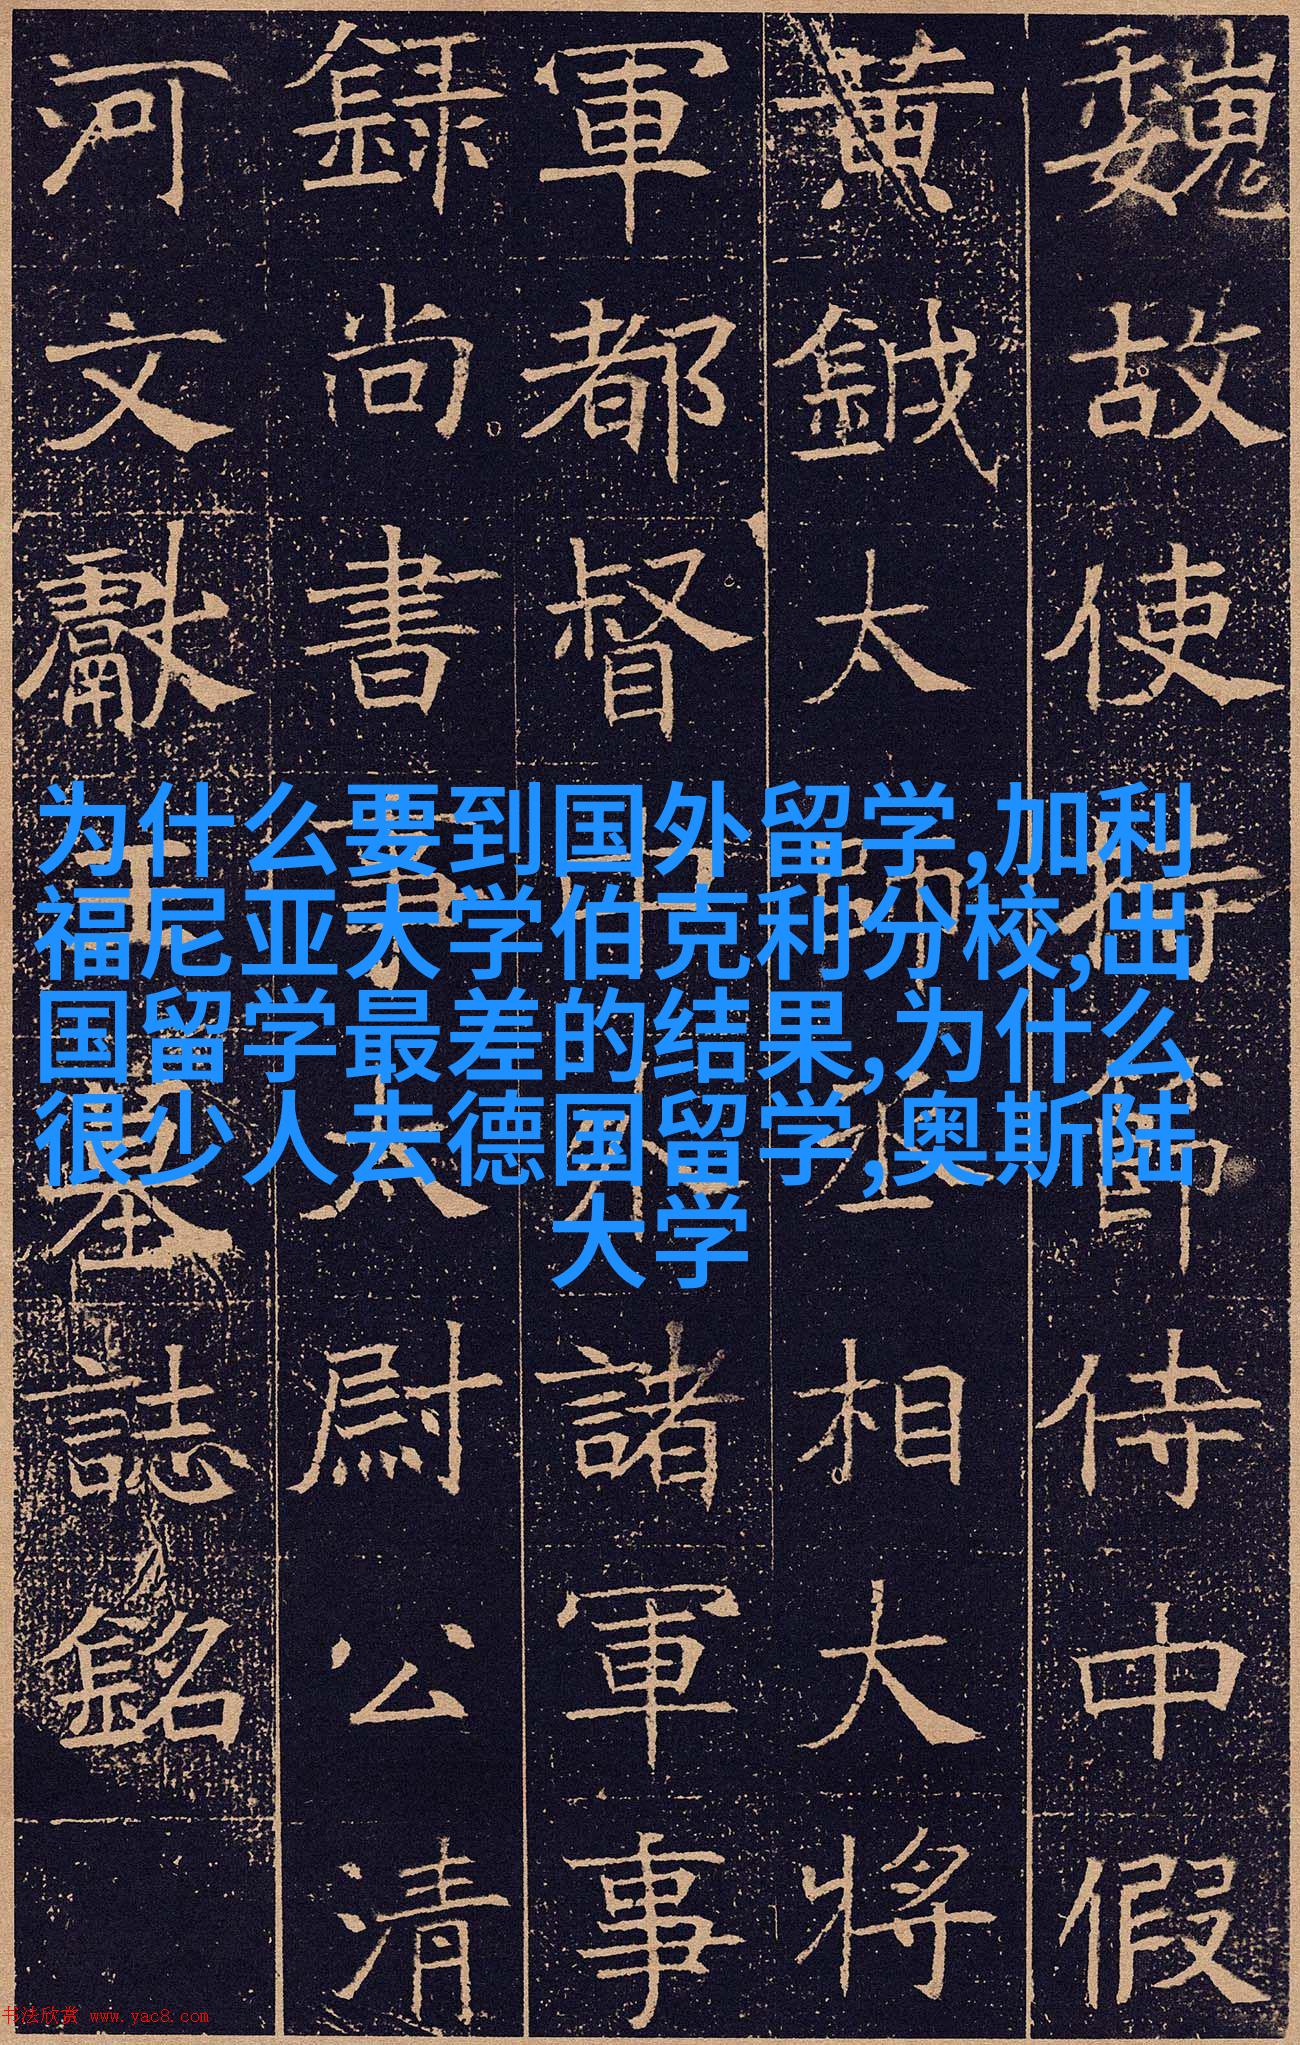 魏故使持節侍中假
黄鉞太師丞相大將
軍都督中外諸軍事
録尚書事太尉公清
河文獻王墓誌銘
为什么要到国外留学,加利
福尼亚大学伯克利分校,出
国留学最差的结果,为什么
很少人去德国留学,奥斯陆
大学
书法欣赏 www.yac8.com